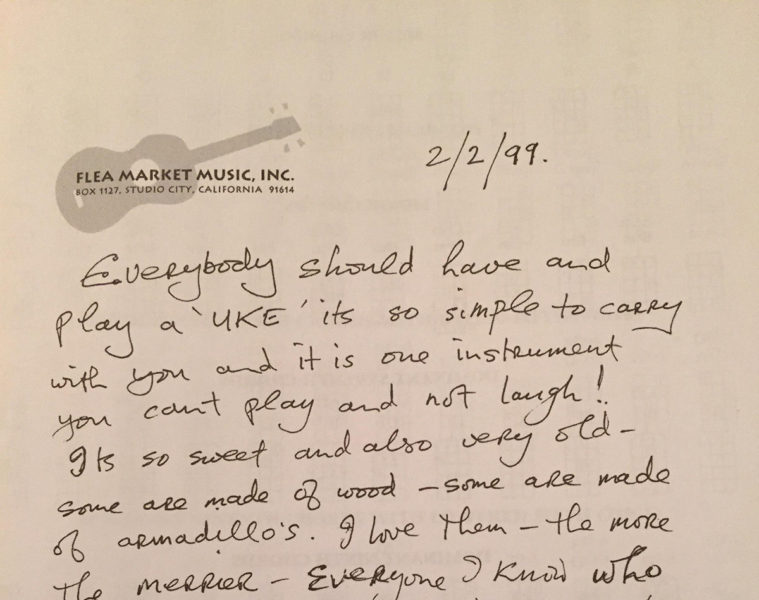 FLEA MARKET MUSIC, INC.
BOX 1127, STUDIO CITY, CALIFORNIA 91614
2/2/99.
Everybody should have and
play a 'UKE' its so simple to carry
with you and it is one instrument
you cant play and not laugh!
Its so sweet and also very old –
some are made of wood – some are made
of armadillo's. I love them – the more
the merrier – Everyone I know who